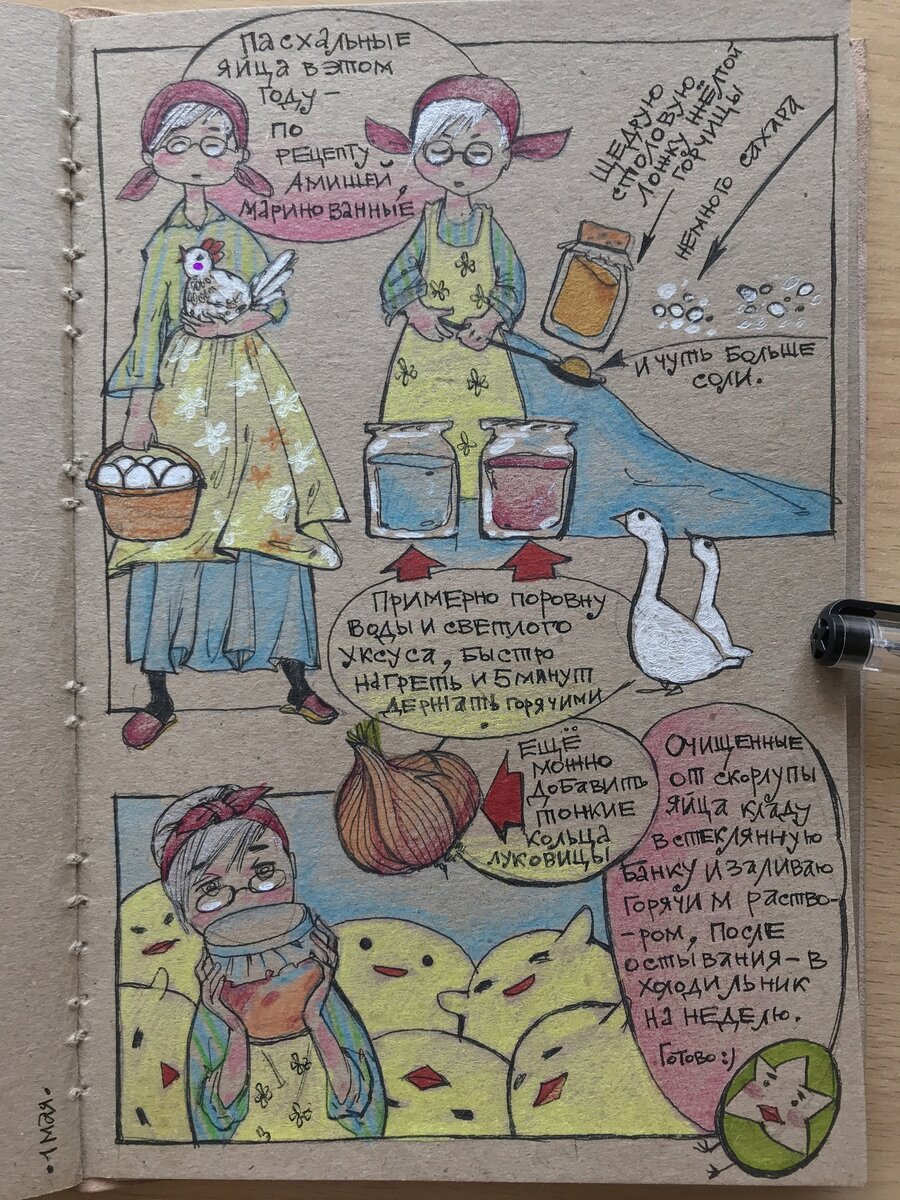 Пасхальные
яйца в этом
году –
по
рецепту
амишей,
маринованные
щедрую
столовую
ложку жёлтой
горчицы
немного сахара
и чуть больше
соли.
Примерно поровну
воды и светлого
уксуса, быстро
нагреть и 5 минут
держать горячими
Ещё
можно
добавить
тонкие
кольца
луковицы
Очищенные
от скорлупы
яйца кладу
в стеклянную
банку и заливаю
горячим раство-
-ром, после
остывания – в
холодильник
на неделю.
Готово :)
·1 мая·